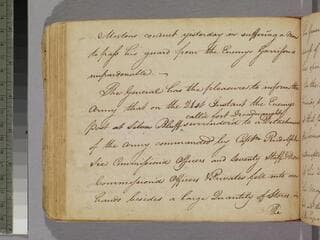 conduct yesterday in suffering a
to pass his guard from the Enemys Garrison
unpardonable. —
The General has the pleasure to inform the
Army that on the 21st Instant the Enemys
called fort
Post at Silver Bluff surrendered to a
of the army commanded by Captn Rudolph
Six Commissiond Officers and Seventy Staff, Non
Commissiond Officers & Privates fell into our
hands besides a large Quantity of Stores
The